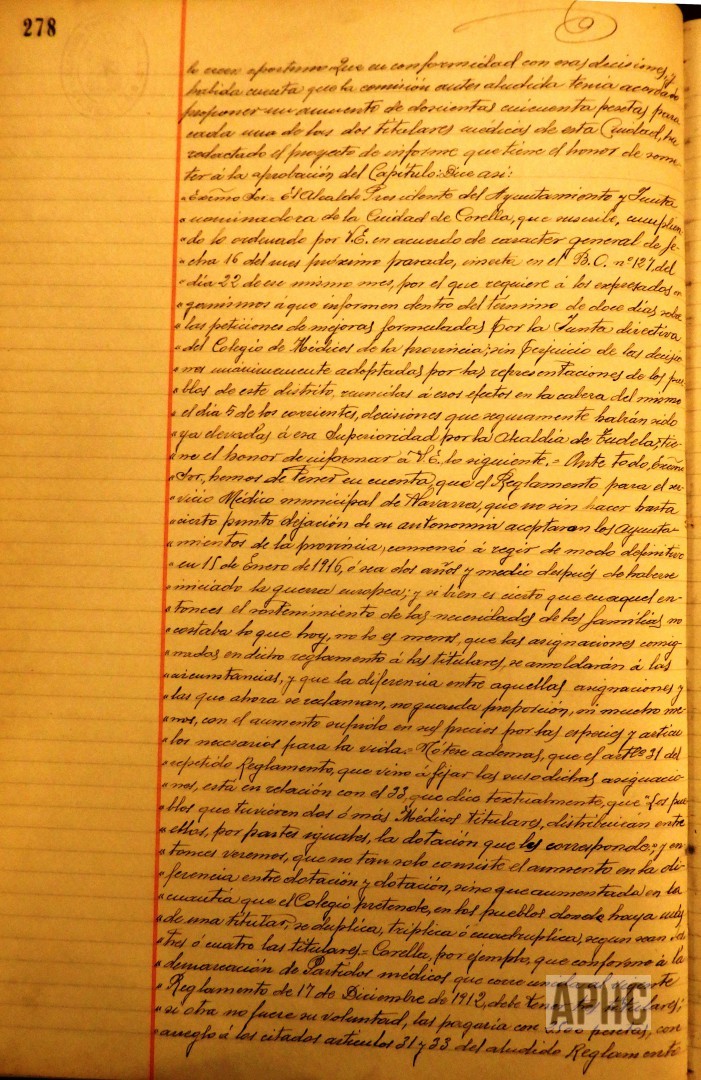 278
lo creen oportuno. Que en conformidad con esas decisiones, y
habida cuenta que la comisión antes aludida tenia acordado
proponer un aumento de doscientas cincuenta pesetas para
cada una de las dos titulares médicas de esta Ciudad, ha
redactado el proyecto de informe que tiene el honor de some-
ter á la aprobación del Capítulo: Dice asi:
"Excmo Sor= El Alcalde Presidente del Ayuntamiento y Junta
"nominadora de la Ciudad de Corella, que suscribe, cumplien-
"do lo ordenado por V.E. en acuerdo de caracter general de fe-
"cha 16 del mes próximo pasado, inserta en el B.O. nº 127, del
"dia 22 de ese mismo mes, por el que requiere á los expresados or-
"ganismos á que informen dentro del término de doce dias sobre
"las peticiones de mejoras formuladas por la Junta directiva
"del Colegio de Médicos de la provincia; sin perjuicio de las decisio-
"nes unánimemente adoptadas por las representaciones de los pue-
"blos de este distrito, reunidas á esos efectos en la cabeza del mismo
"el dia 5 de los corrientes, decisiones que seguramente habrán sido
"ya elevadas á esa Superioridad por la Alcaldia de Tudela, tie-
"ne el honor de informar á V.E. lo siguiente.= Ante todo, Excmo
"Sor, hemos de tener en cuenta, que el Reglamento para el ser-
"vicio Médico municipal de Navarra, que no sin hacer hasta
"cierto punto dejación de su autonomia aceptaron los Ayunta-
"mientos de la provincia, comenzó á regir de modo definitivo
"en 15 de Enero de 1916, ó sea dos años y medio después de haberse
"iniciado la guerra europea; y si bien es cierto que en aquel en-
"tonces el sostenimiento de las necesidades de las familias no
"costaba lo que hoy, no lo es menos, que las asignaciones consig-
"nadas en dicho reglamento á las titulares, se amoldarán á las
"circunstancias, y que la diferencia entre aquellas asignaciones y
"las que ahora se reclaman, no guarda proposición, ni mucho me-
"nos, con el aumento sufrido en sus precios por las especies y articu-
"los necesarios para la vida.= Nótese ademas, que el artº 31 del
"repetido Reglamento, que vino á fijar las susodichas asignacio-
"nes, está en relación con el 33, que dice textualmente, que "Los pue-
"blos que tuvieren dos ó más Médicos titulares, distribuirán entre
"ellos, por partes iguales, la dotación que les corresponde"; y en-
"tonces veremos, que no tan solo consiste el aumento en la di-
"ferencia entre dotación y dotación, sino que aumentada en la
"cuantia que el Colegio pretende, en los pueblos donde haya más
"de una titular, se duplica, triplica ó cuadruplica, segun sean dos
"tres ó cuatro las titulares.= Corella, por ejemplo, que conforme á la
"demarcación de Partidos médicos que corre unida al vigente
"Reglamento de 17 de Diciembre de 1912, debe tener titulares;
"si otra no fuere su voluntad, las pagaria con pesetas, con
"arreglo á los citados articulos 31 y 33 del aludido Reglamento
APHC